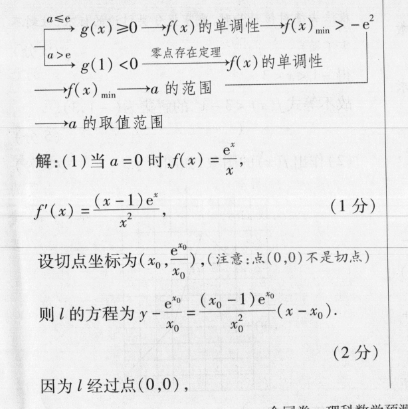 a≤e g(x)≥0 ⟶ f(x)的单调性 ⟶ f(x)min > -e²
a>e g(1)<0 零点存在定理 ⟶ f(x)的单调性
⟶ f(x)min ⟶ a 的范围
⟶ a 的取值范围
解:(1)当 a=0 时,f(x)=e^x/x,
f′(x)=(x-1)e^x/x², (1分)
设切点坐标为(x₀,e^x₀/x₀),(注意:点(0,0)不是切点)
则 l 的方程为 y-e^x₀/x₀=(x₀-1)e^x₀/x₀²(x-x₀).
(2分)
因为 l 经过点(0,0),